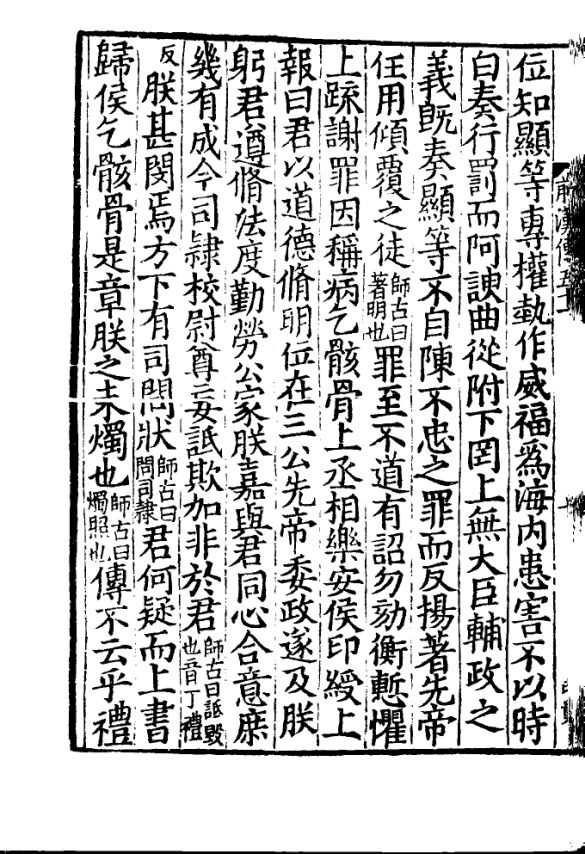 位知顯等專權埶作威福爲海内患害不以時
白奏行罰而阿諛曲從附下罔上無大臣輔政之
義旣奏顯等不自陳不忠之罪而反揚著先帝
任用傾覆之徒師古曰著明也罪至不道有詔勿劾衡慙懼
上疏謝罪因稱病乞骸骨上丞相樂安侯印綬上
報曰君以道德脩明位在三公先帝委政遂及朕
躬君遵脩法度勤勞公家朕嘉與君同心合意庶
幾有成今司隷校尉尊妄詆欺加非於君師古曰詆毁也音丁禮
反朕甚閔焉方下有司問狀師古曰問司隷君何疑而上書
歸侯乞骸骨是章朕之未燭也師古曰燭照也傳不云乎禮